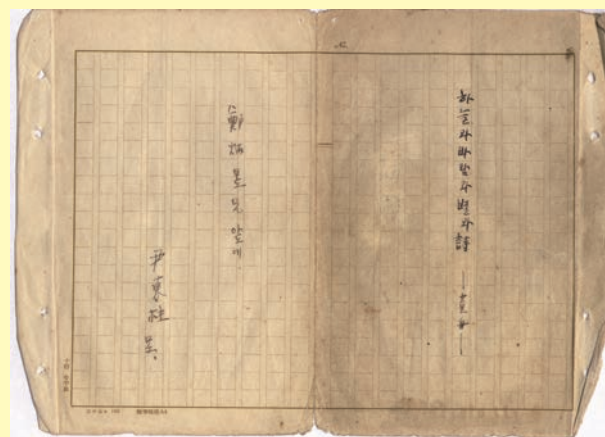 하늘과바람과별과詩
鄭炳昱兄앞에
尹東柱 呈。